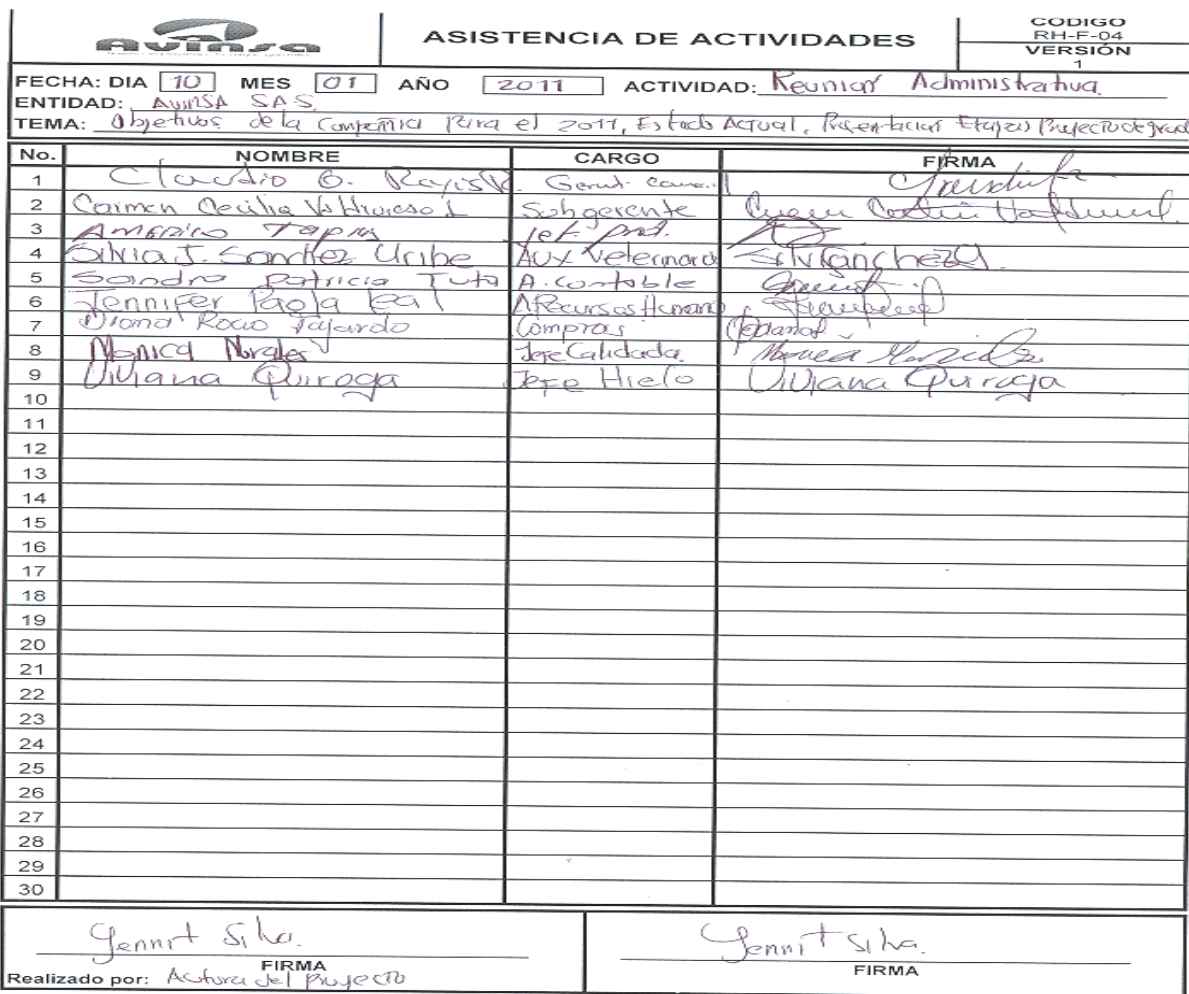 Avinsa
ASISTENCIA DE ACTIVIDADES
CODIGO
RH-F-04
VERSIÓN
1
FECHA: DIA 10 MES 01 AÑO 2011 ACTIVIDAD: Reunion Administrativa
ENTIDAD: AvinSA SAS.
TEMA: Objetivos de la Compañia Para el 2011, Estado Actual, Presentacion Etapas Proyecto de grado
No. NOMBRE CARGO FIRMA
1 Claudio O.
2 Carmen Cecilia Subgerente
3 Americo Tapias Jef. Prod.
4 Silvia J. Sanchez Uribe Aux Veterinaria SilviaSanchezU.
5 Sandra Patricia Tuta A. Contable
6 Jennifer Paola Leal A Recursos Humano
7 Diana Rocio Fajardo Compras
8 Monica Morales Jefe Calidada. Monica
9 Viviana Quiroga Jefe Hielo Viviana Quiroga
10
11
12
13
14
15
16
17
18
19
20
21
22
23
24
25
26
27
28
29
30
Yennit Silva. Yennit Silva.
FIRMA FIRMA
Realizado por: Autora del Proyecto